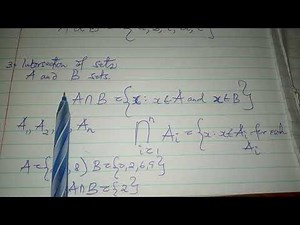 3. Intersection of sets
A and B sets.
A∩B = {x: x∈A and x∈B}
A₁, A₂, Aₙ ⋂ⁿᵢ₌₁ Aᵢ = {x: x∈Aᵢ for each
Aᵢ
A = { , 2) B = {0,2,6,9}
A∩B = {2}